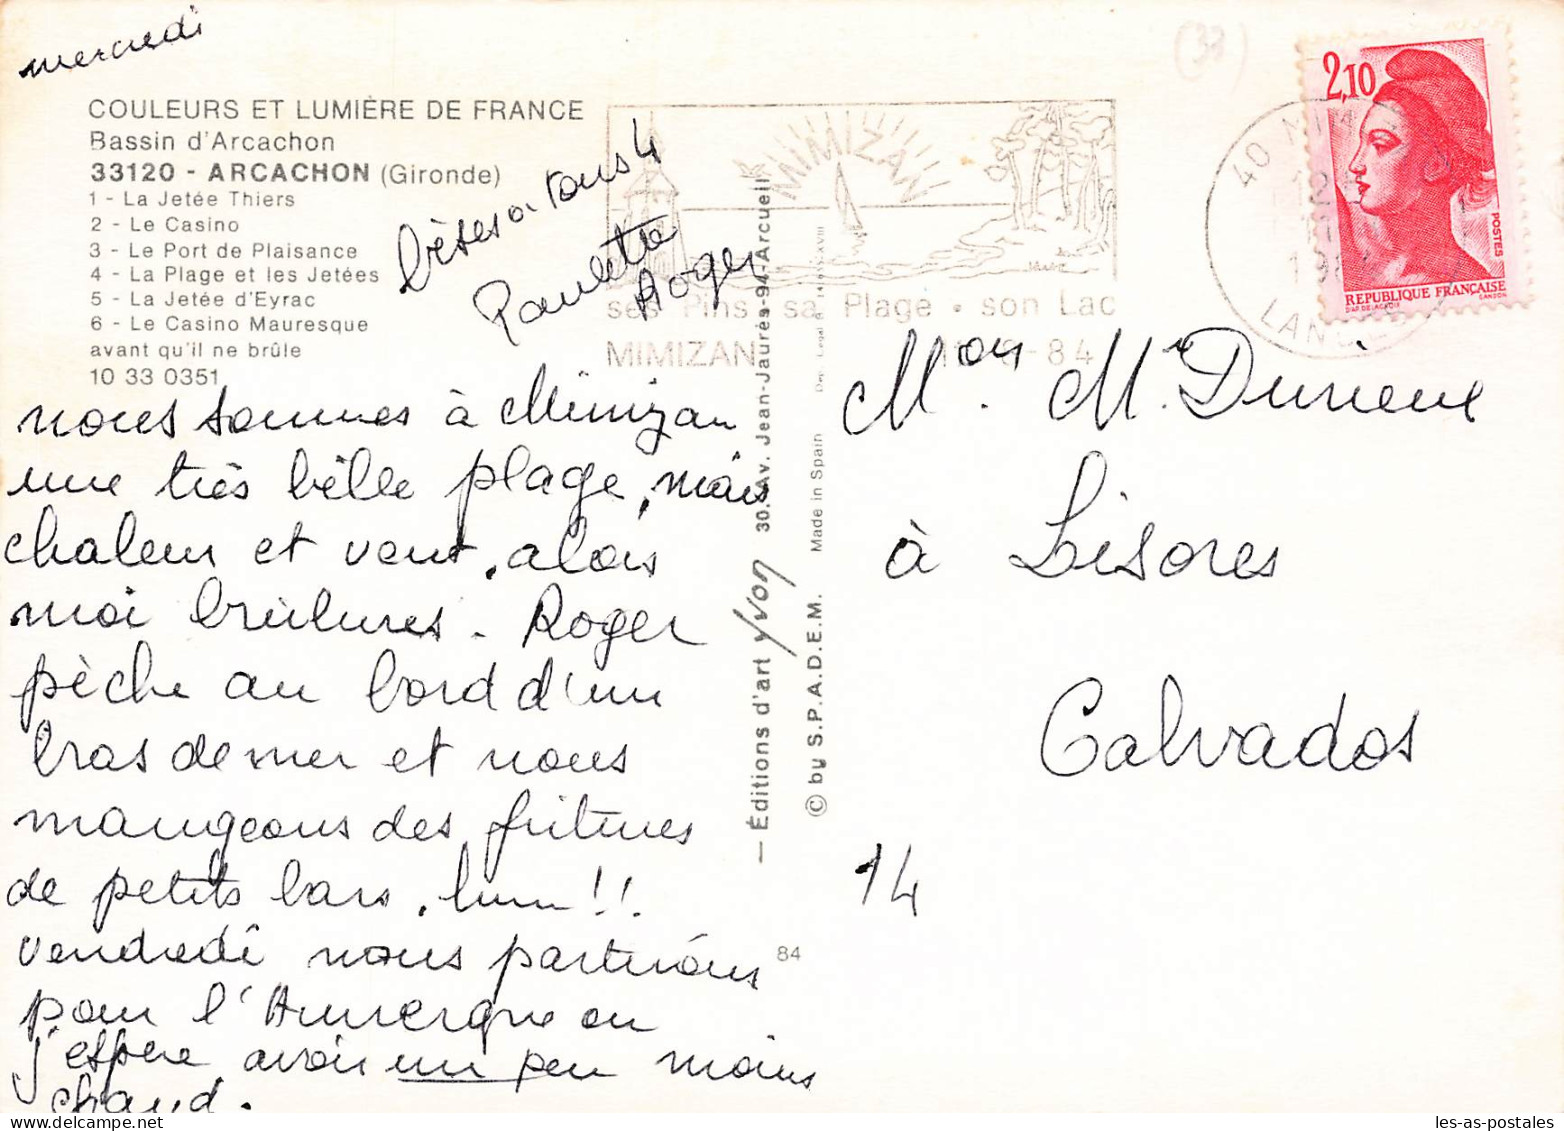 mercredi
COULEURS ET LUMIÈRE DE FRANCE
Bassin d'Arcachon
33120 - ARCACHON (Gironde)
1 - La Jetée Thiers
2 - Le Casino
3 - Le Port de Plaisance
4 - La Plage et les Jetées
5 - La Jetée d'Eyrac
6 - Le Casino Mauresque
avant qu'il ne brûle
10 33 0351
bises à tous 4
Paulette
Roger
nous sommes à Mimizan
une très bèlle plage, mais
chaleur et vent, alors
moi brûlures. Roger
pèche au bord d'un
bras de mer et nous
mangeons des fritures
de petits bars. hum!!
vendredi nous partirons
pour l'Auvergne ou
j'espère avoir un peu moins
chaud.
MIMIZAN
ses Pins sa Plage • son Lac
MIMIZAN
-84
(33)
2,10
POSTES
REPUBLIQUE FRANÇAISE
40 MIM
LAN
— Éditions d'art Yvon 30, Av. Jean-Jaurès-94-Arcueil
© by S.P.A.D.E.M. Made in Spain
84
Mon. M. Durieux
à Lisores
Calvados
14
les-as-postales